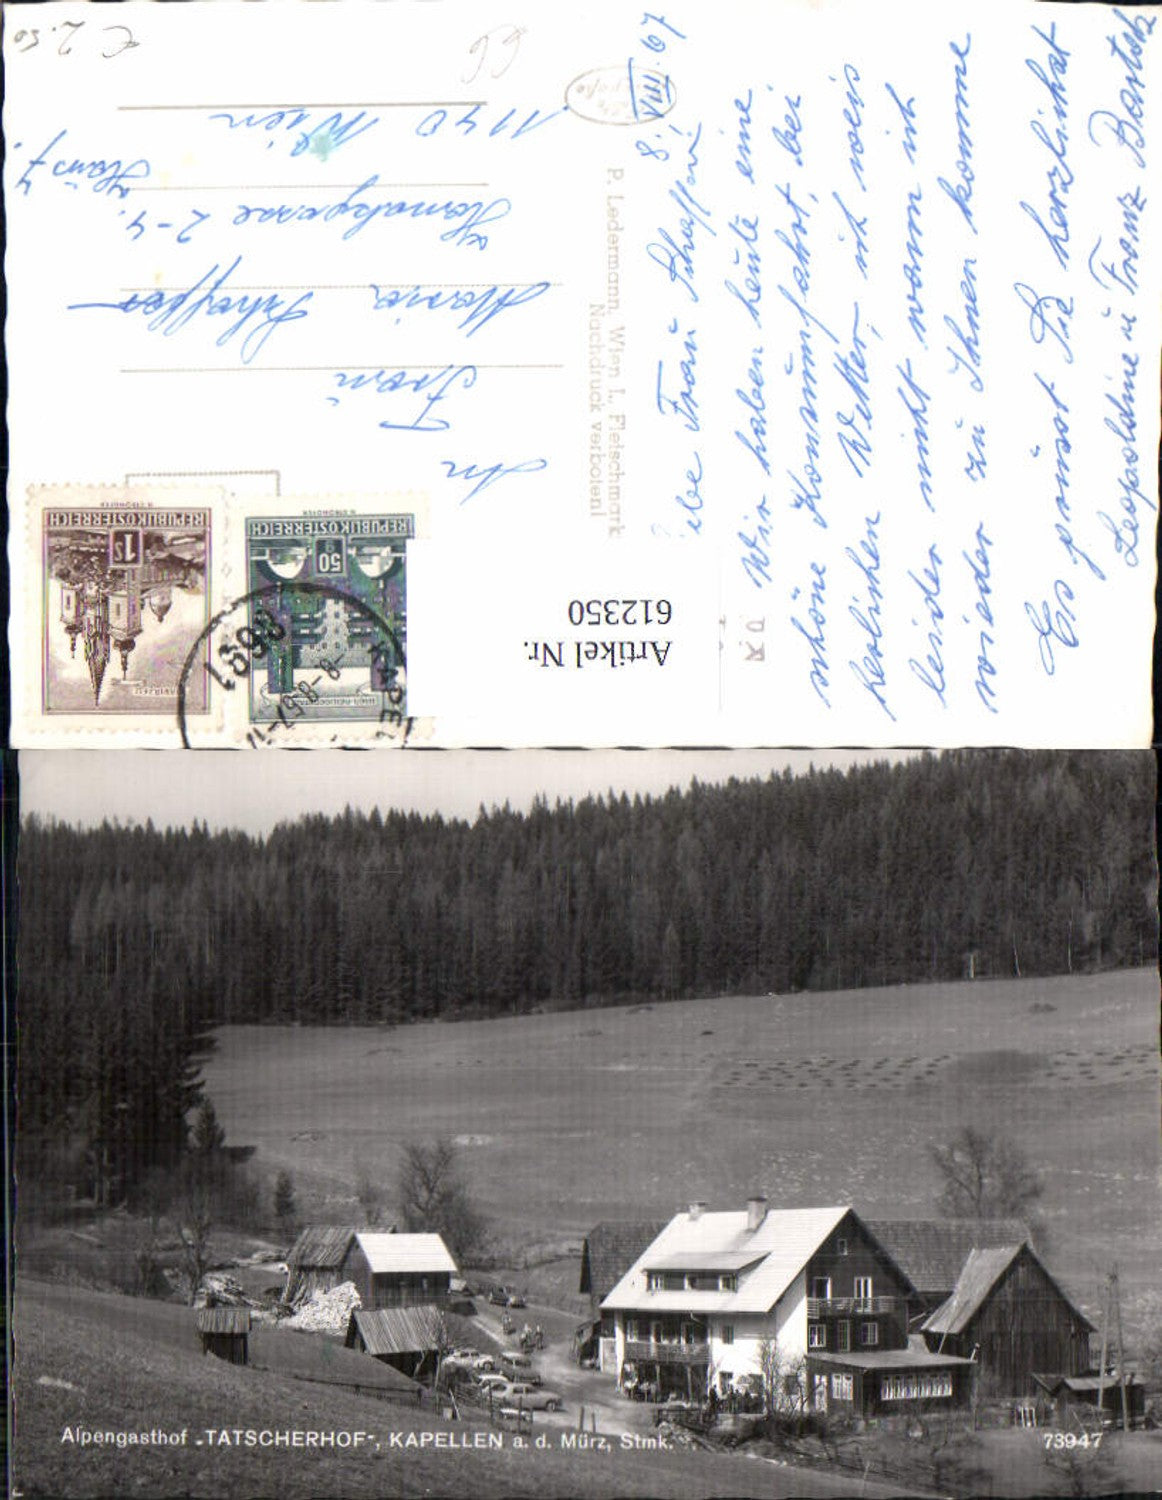 € 2.50
8. VIII. 67
Liebe Frau Schaffer!
Wir haben heute eine
schöne Konsumfahrt, bei
herlichen Wetter, ich weis
leider nicht wann ich
wieder zu Ihnen komme
Es grüsst Sie herzlichst
Leopoldine u Franz
P. Ledermann, Wien I., Fleischmarkt
Nachdruck verboten!
An
Frau
Maria Schaffer
2-4.
1140 Wien
REPUBLIK ÖSTERREICH
1 S
MARIAZELL
REPUBLIK ÖSTERREICH
50
g
8691
KAPEL
-8-8.67-11
Artikel Nr.
612350
Alpengasthof „TATSCHERHOF“, KAPELLEN a. d. Mürz, Stmk.
73947